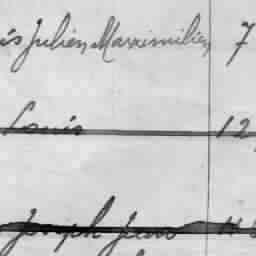 is Julien Maximilien 7
Louis 12
Joseph Jean